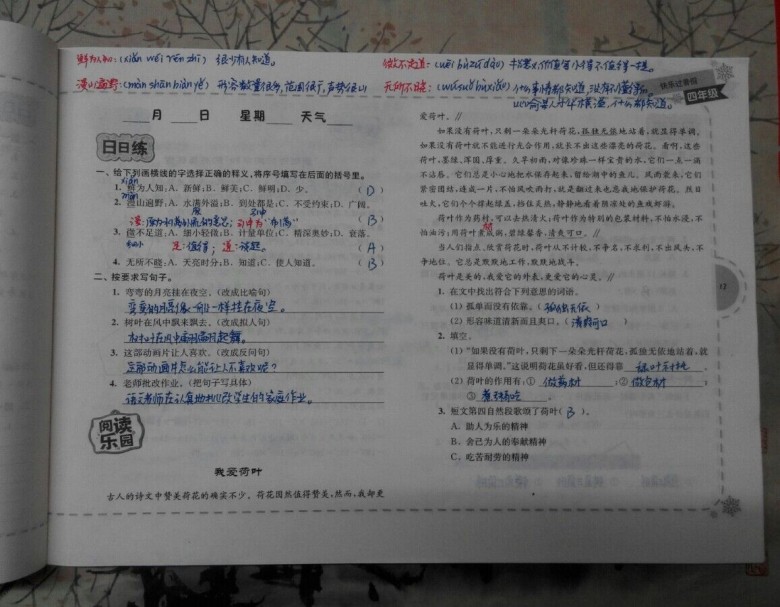 鲜为人知:(xiǎn wéi rén zhī) 很少有人知道。
漫山遍野:(màn shān biàn yě) 形容数量很多,范围很广,声势很大
微不足道:(wēi bù zú dào)
无所不晓:
快乐过暑假
四年级
月 日 星期 天气
日日练
一、给下列画横线的字选择正确的释义,将序号填写在后面的括号里。
xiǎn
1. 鲜为人知:A. 新鲜;B. 鲜美;C. 鲜明;D. 少。 (D)
màn
2. 漫山遍野:A. 水满外溢;B. 到处都是;C. 不受约束;D. 广阔。
(B)
3. 微不足道:A. 细小轻微;B. 计量单位;C. 精深奥妙;D. 衰落。
足:值得; 道:谈起。 (A)
4. 无所不晓:A. 天亮时分;B. 知道;C. 使人知道。 (B)
二、按要求写句子。
1. 弯弯的月亮挂在夜空。(改成比喻句)
弯弯的月亮像一样挂在夜空。
2. 树叶在风中飘来飘去。(改成拟人句)
树叶在风中翩翩起舞。
3. 这部动画片让人喜欢。(改成反问句)
这部动画片怎么能让人不喜欢呢?
4. 老师批改作业。(把句子写具体)
语文老师在认真地批改学生的家庭作业。
阅读乐园
我爱荷叶
古人的诗文中赞美荷花的确实不少。荷花固然值得赞美,然而,我却更
爱荷叶。
如果没有荷叶,只剩一朵朵光秆荷花,孤独无依地站着,就显得单调。
如果没有荷叶就不能进行光合作用,就长不出这些漂亮的荷花。看啊,这些
荷叶,墨绿、浑圆、厚重。久旱初雨,对像珍珠一样宝贵的水,它们一点一滴
不沾吞。它们总是小心地把水保存起来,留给湖中的鱼儿。风雨袭来,它们
紧密团结,连成一片,不怕风吹雨打,就是翻过来也愿我地保护荷花。烈日
吐火,它们个个撑起绿盖,挡住炎热,静静地看着阴凉处的鱼戏虾游。
荷叶作为药材,可以去热清火;荷叶作为特别的包装材料,不怕水浸,不
怕油污;用荷叶煮成粥,碧绿馨香,清爽可口。
当人们指点、欣赏荷花时,荷叶从不计较,不争名,不求利,不出风头,不
争地位。它总是默默地工作,默默地战斗。
荷叶是美的,我爱它的外表,更爱它的心灵。
1. 在文中找出符合下列意思的词语。
(1) 孤单而没有依靠。(孤独无依)
(2) 形容味道清新而且爽口。(清爽可口)
2. 填空。
(1) “如果没有荷叶,只剩下一朵朵光秆荷花,孤独无依地站着,就
显得单调。”这说明荷花虽好看,但还得靠绿叶衬托。
(2) 荷叶的作用有:① 做药材 ;② 做包材 ;
③ 煮粥吃 。
3. 短文第四自然段歌颂了荷叶(B)。
A. 助人为乐的精神
B. 舍己为人的奉献精神
C. 吃苦耐劳的精神
17